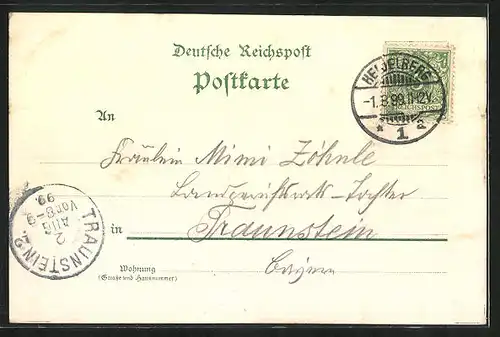 Deutsche Reichspost
Postkarte
HEIDELBERG
-1.8.99.11-12V.
* 1 a
REICHSPOST
An
Fräulein Mimi Zöhnle
Landgerichtsrats-Tochter
in Traunstein
Bayern
Wohnung
(Straße und Hausnummer)
TRAUNSTEIN 2.
2
AUG
Vor 8-9
99.